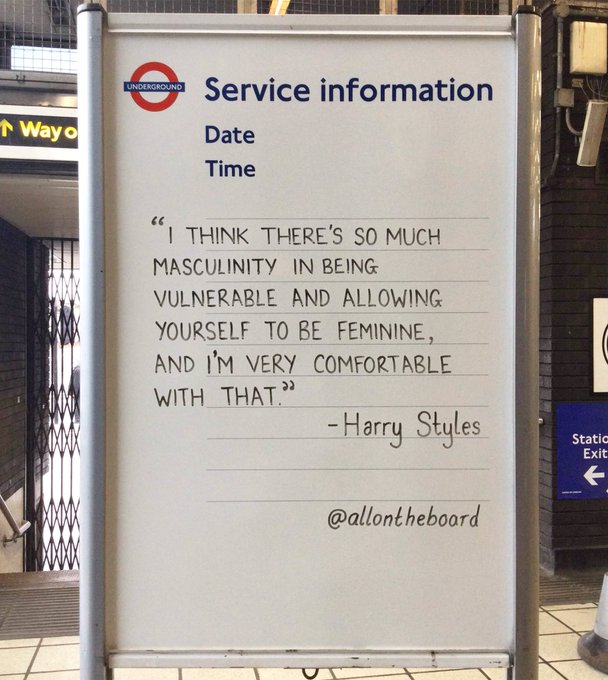 UNDERGROUND
Service information
Date
Time
Way o
“I THINK THERE'S SO MUCH
MASCULINITY IN BEING
VULNERABLE AND ALLOWING
YOURSELF TO BE FEMININE,
AND I'M VERY COMFORTABLE
WITH THAT.”
-Harry Styles
@allontheboard
Statio
Exit